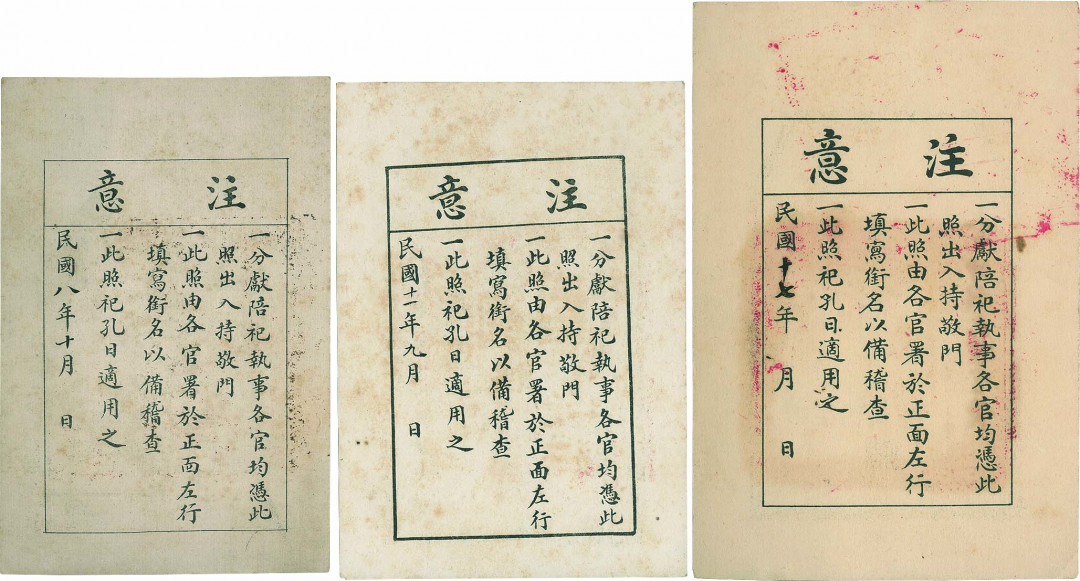 注意
一分獻陪祀執事各官均憑此
照出入持敬門
一此照由各官署於正面左行
填寫銜名以備稽查
一此照祀孔日適用之
民國八年十月 日
注意
一分獻陪祀執事各官均憑此
照出入持敬門
一此照由各官署於正面左行
填寫銜名以備稽查
一此照祀孔日適用之
民國十一年九月 日
注意
一分獻陪祀執事各官均憑此
照出入持敬門
一此照由各官署於正面左行
填寫銜名以備稽查
一此照祀孔日適用之
民國十七年 月 日